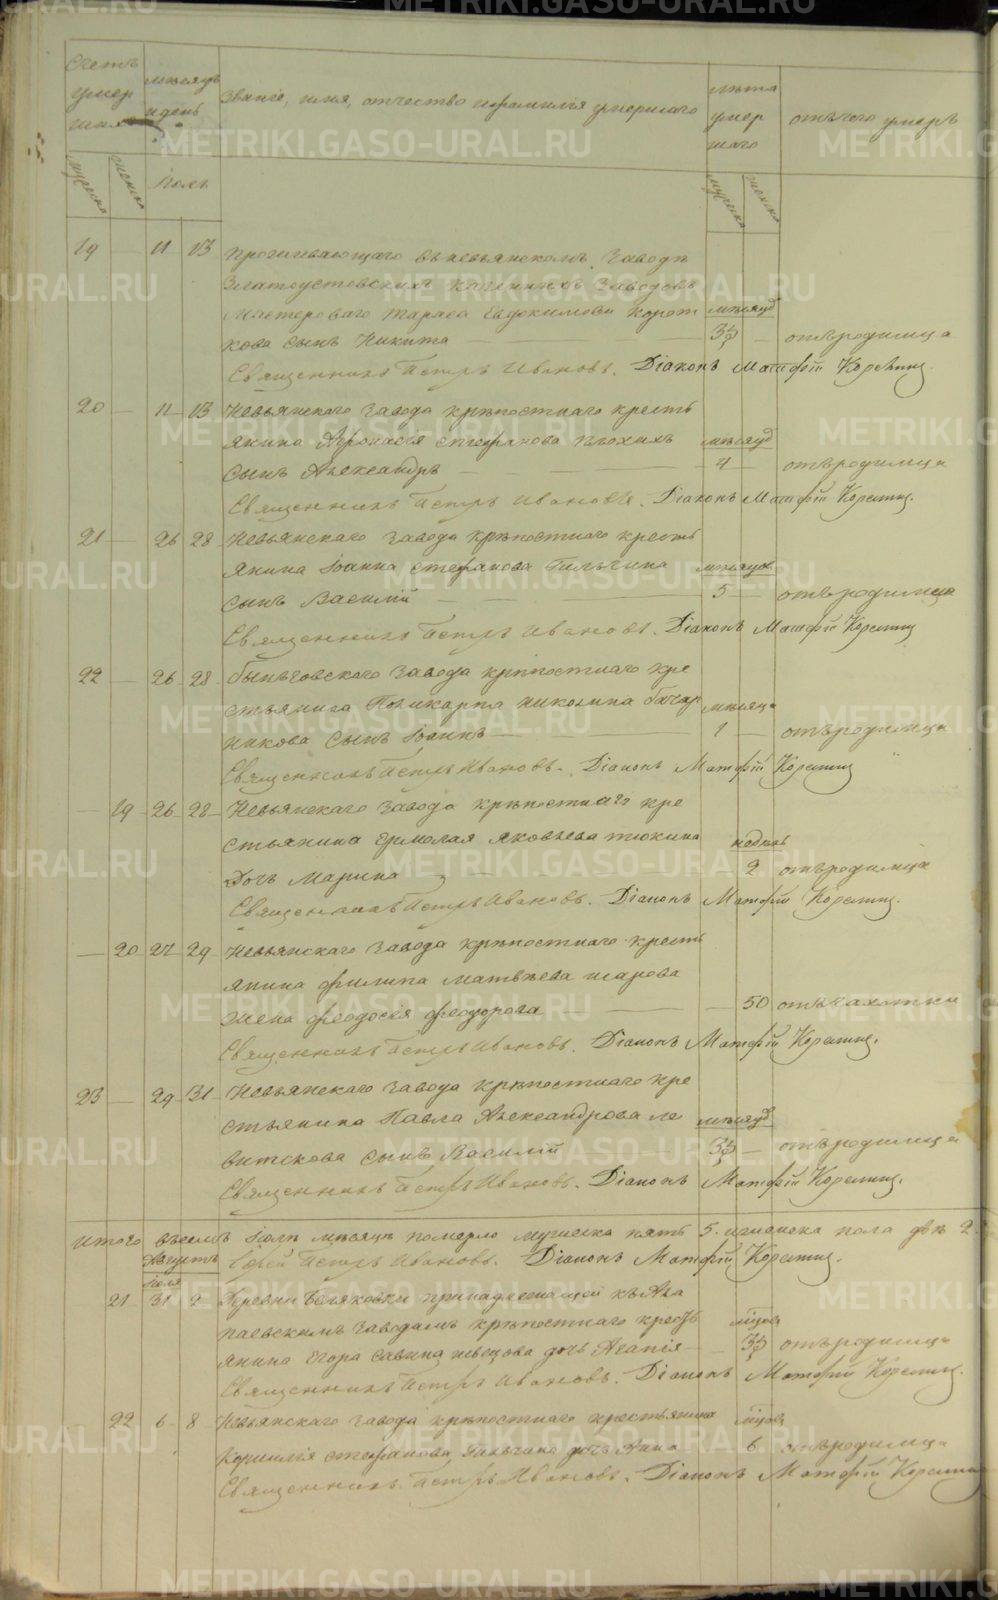 Счетъ умершихъ
мѣсяцъ и день
Званіе, имя, отчество и фамилія умершаго
лѣта умершаго
отъ чего умеръ
мужеска
женска
Іюль
мужеска
женска
19 — 11 13 Проживающаго въ Невьянскомъ заводѣ
Златоустовскихъ казенныхъ заводовъ
Мастероваго Тараса Евдокимова Корот мѣсяцъ
кова сынъ Никита — — — 3½ — отъ родимца
Священникъ Петръ Ивановъ. Діаконъ Матфій Корепинъ.
20 — 11 13 Невьянскаго завода крѣпостнаго кресть
янина Аѳонасія Стефанова Плохихъ мѣсяцъ
сынъ Александръ — — — 4 — отъ родимца
Священникъ Петръ Ивановъ. Діаконъ Матфій Корепинъ.
21 — 26 28 Невьянскаго завода крѣпостнаго кресть
янина Іоанна Стефанова мѣсяцовъ
сынъ Василій — — — 5 — отъ родимца
Священникъ Петръ Ивановъ. Діаконъ Матфій Корепинъ
22 — 26 28 Быньговскаго завода крѣпостнаго кре
стьянина Поликарпа мѣсяца
никова сынъ Іоаннъ — — 1 — отъ родимца
Священникъ Петръ Ивановъ. Діаконъ Матфій Корепинъ
— 19 26 28 Невьянскаго завода крѣпостнаго кре
стьянина Ермолая Яковлева Тюкина недѣль
дочь Марина — — 2 отъ родимца
Священникъ Петръ Ивановъ. Діаконъ Матфій Корепинъ.
— 20 27 29 Невьянскаго завода крѣпостнаго кресть
янина Филипа Матвѣева Шарова
жена Феодосія Феодорова — — — 50 отъ чахотки
Священникъ Петръ Ивановъ. Діаконъ Матфій Корепинъ.
23 — 29 31 Невьянскаго завода крѣпостнаго кре
стьянина Павла Александрова Ле мѣсяцъ
витскова сынъ Василій 3½ — отъ родимца
Священникъ Петръ Ивановъ. Діаконъ Матфій Корепинъ.
Итого въ Іюлѣ мѣсяцѣ померло мужеска пять 5. женска пола двѣ 2.
Августъ
Іерей Петръ Ивановъ. Діаконъ Матфій Корепинъ.
Іюля
21 31 2 Деревни принадлежащей къ Ала
паевскимъ заводамъ крѣпостнаго кресть мцовъ
янина Егора Савина Швецова дочь Агапія — 3½ отъ родимца
Священникъ Петръ Ивановъ. Діаконъ Матфій Корепинъ.
22 6 8 Невьянскаго завода крѣпостнаго крестьянина мцовъ
Корнилія Стефанова дочь Анна 6 отъ родимца
Священникъ Петръ Ивановъ. Діаконъ Матфій Корепинъ
METRIKI.GASO-URAL.RU